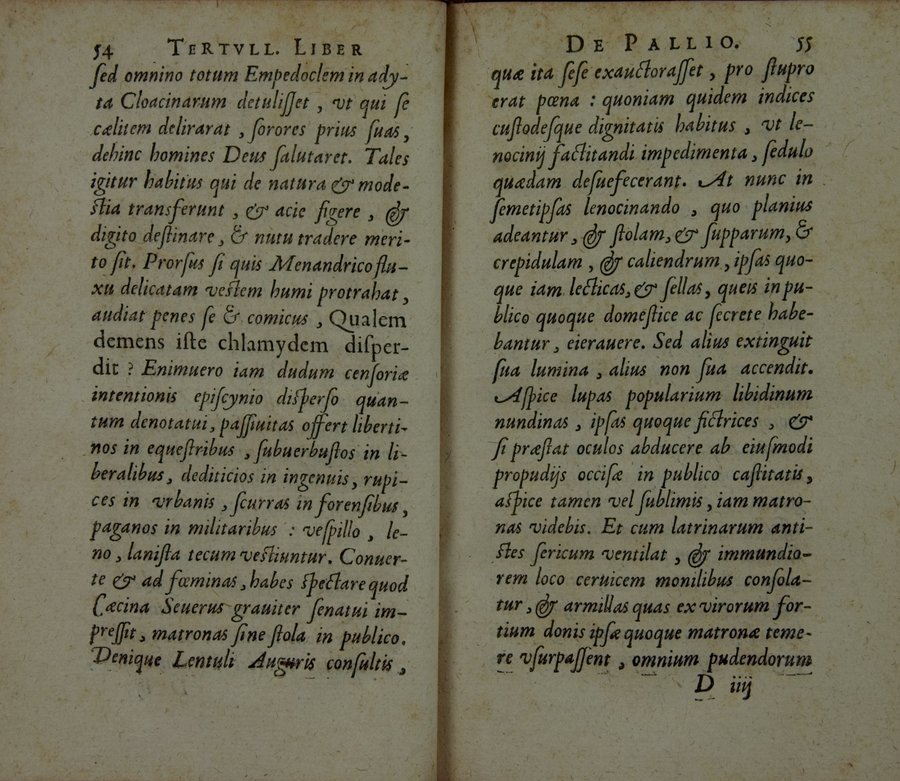 54 TERTVLL. LIBER
ſed omnino totum Empedoclem in ady-
ta Cloacinarum detuliſſet, vt qui ſe
cælitem delirarat, ſorores prius ſuas,
dehinc homines Deus ſalutaret. Tales
igitur habitus qui de natura & mode-
ſtia transferunt, & acie figere, &
digito deſtinare, & nutu tradere meri-
to ſit. Prorſus ſi quis Menandrico flu-
xu delicatam veſtem humi protrahat,
audiat penes ſe & comicus, Qualem
demens iſte chlamydem diſper-
dit? Enimuero iam dudum cenſoriæ
intentionis epiſcynio diſperſo quan-
tum denotatui, paſſiuitas offert liberti-
nos in equeſtribus, ſubuerbuſtos in li-
beralibus, dediticios in ingenuis, rupi-
ces in vrbanis, ſcurras in forenſibus,
paganos in militaribus: veſpillo, le-
no, laniſta tecum veſtiuntur. Conuer-
te & ad fœminas, habes ſpectare quod
Cæcina Seuerus grauiter ſenatui im-
preſſit, matronas ſine ſtola in publico.
Denique Lentuli Auguris conſultis,
DE PALLIO. 55
quæ ita ſeſe exauctoraſſet, pro ſtupro
erat pœna: quoniam quidem indices
cuſtodeſque dignitatis habitus, vt le-
nocinij factitandi impedimenta, ſedulo
quædam deſuefecerant. At nunc in
ſemetipſas lenocinando, quo planius
adeantur, & ſtolam, & ſupparum, &
crepidulam, & caliendrum, ipſas quo-
que iam lecticas, & ſellas, queis in pu-
blico quoque domeſtice ac ſecrete habe-
bantur, eierauere. Sed alius extinguit
ſua lumina, alius non ſua accendit.
Aſpice lupas popularium libidinum
nundinas, ipſas quoque fictrices, &
ſi præſtat oculos abducere ab eiuſmodi
propudijs occiſæ in publico caſtitatis,
aſpice tamen vel ſublimis, iam matro-
nas videbis. Et cum latrinarum anti-
ſtes ſericum ventilat, & immundio-
rem loco ceruicem monilibus conſola-
tur, & armillas quas ex virorum for-
tium donis ipſæ quoque matronæ teme-
re vſurpaſſent, omnium pudendorum
D iiij